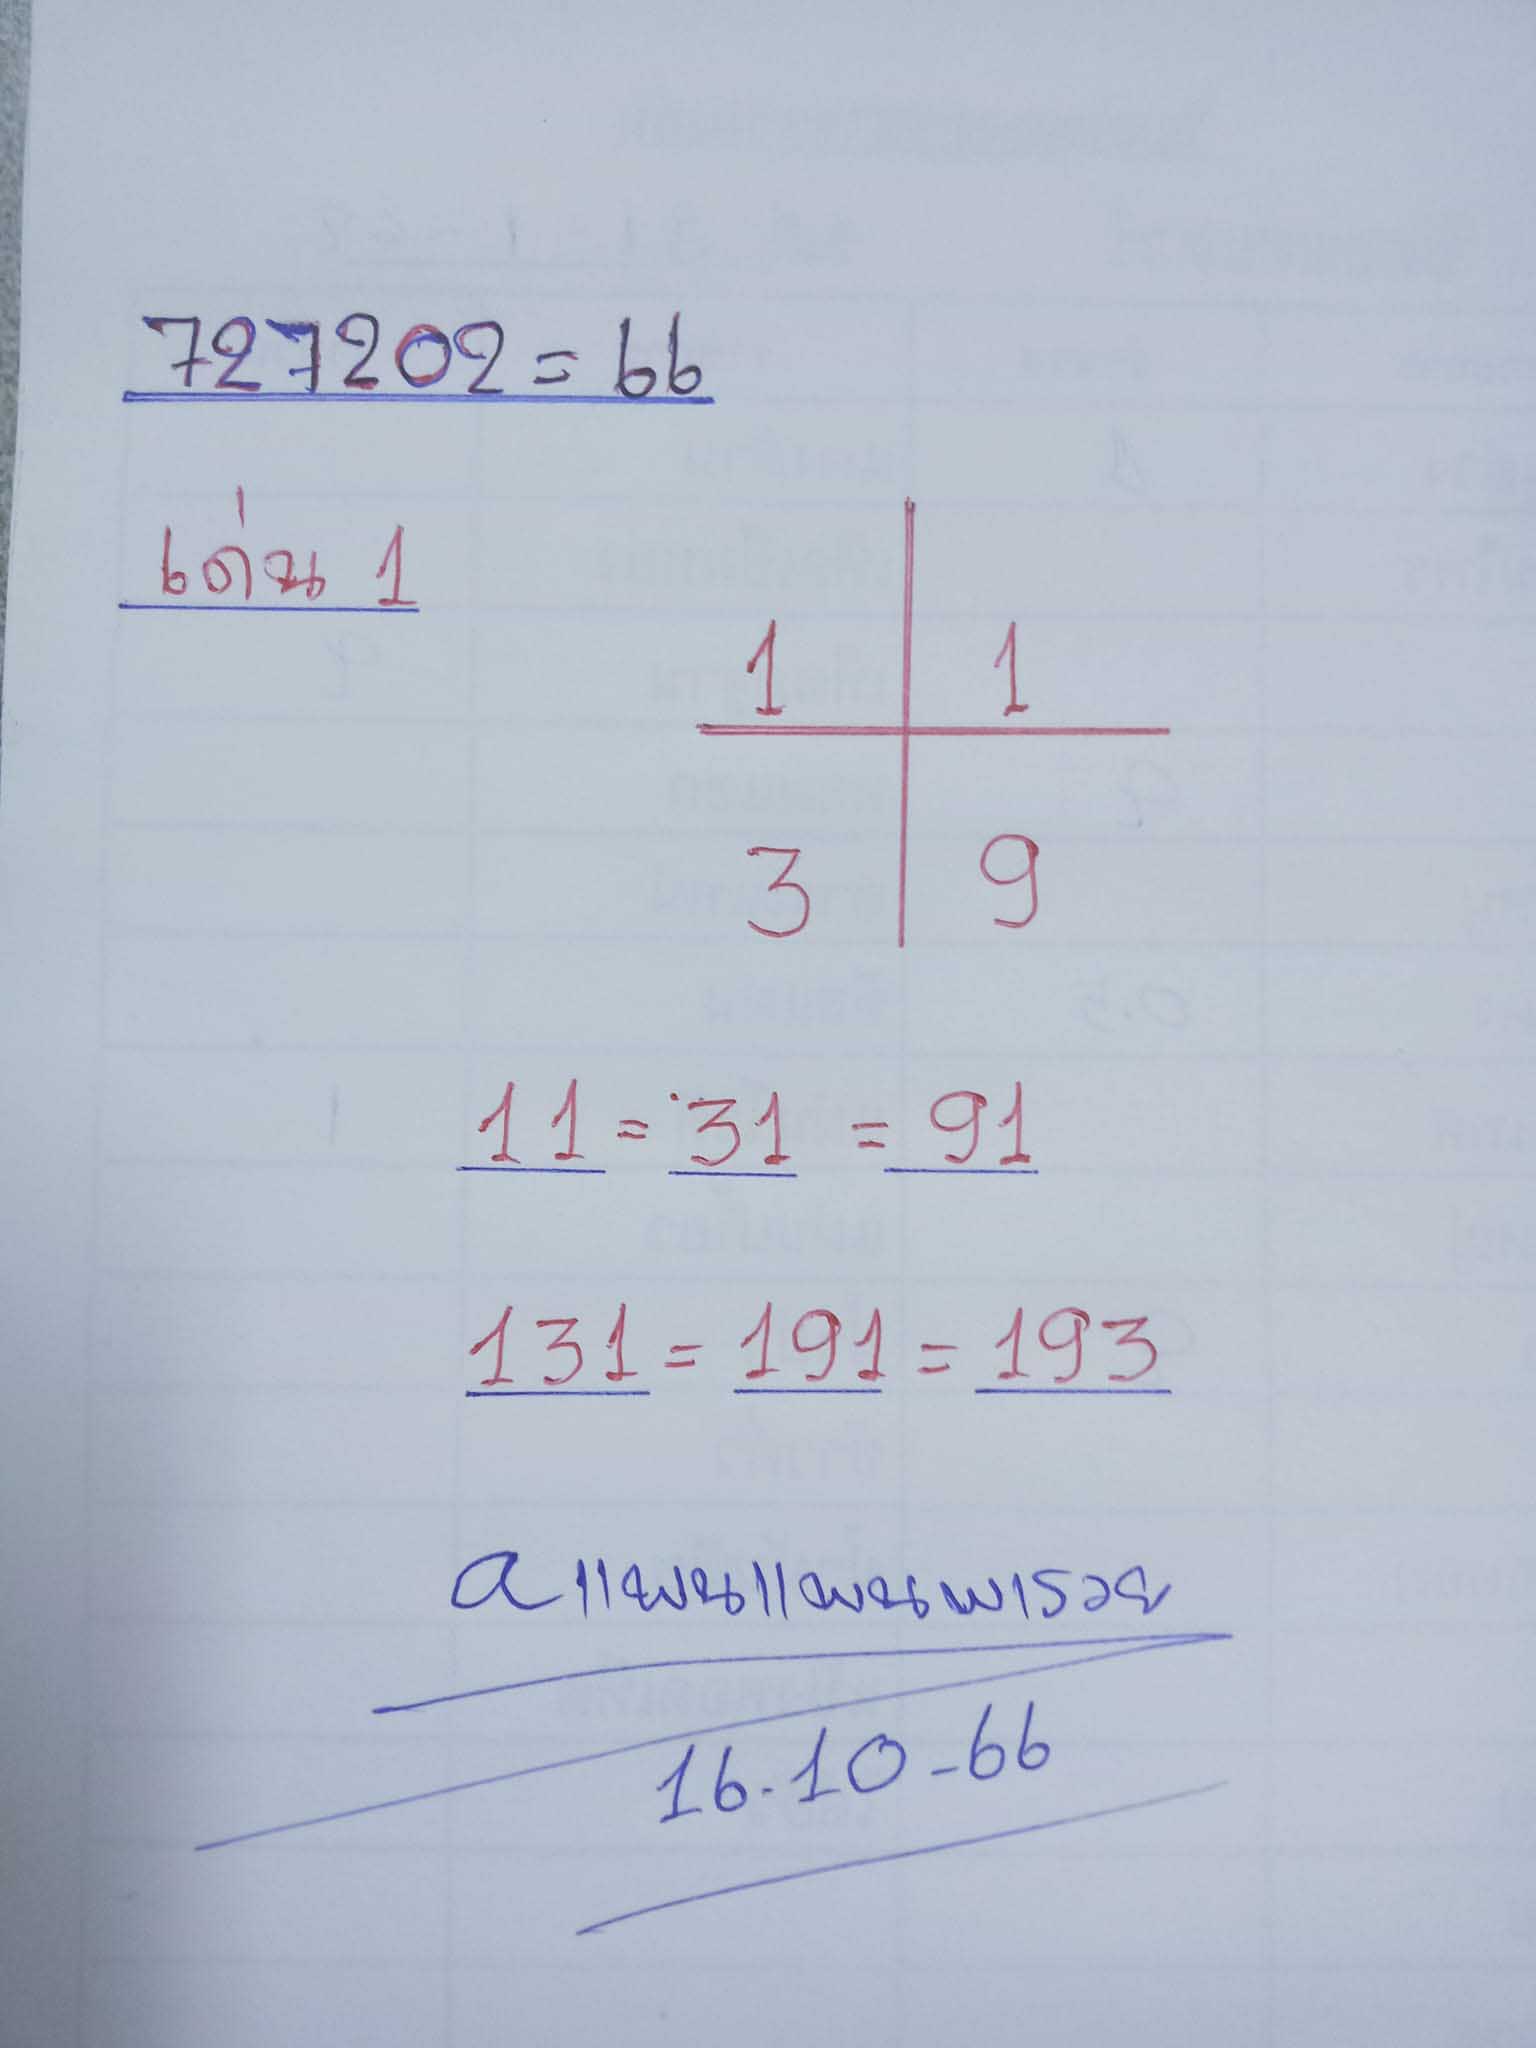 727202 = 66
เด่น 1
1 1
3 9
11 = 31 = 91
131 = 191 = 193
aแพนแพนพารวย
16.10-66